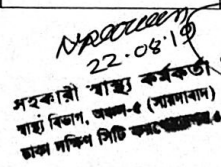 22.08.19
সহকারী স্বাস্থ্য কর্মকর্তা
স্বাস্থ্য বিভাগ, অঞ্চল-৫ (সায়দাবাদ)
ঢাকা দক্ষিণ সিটি